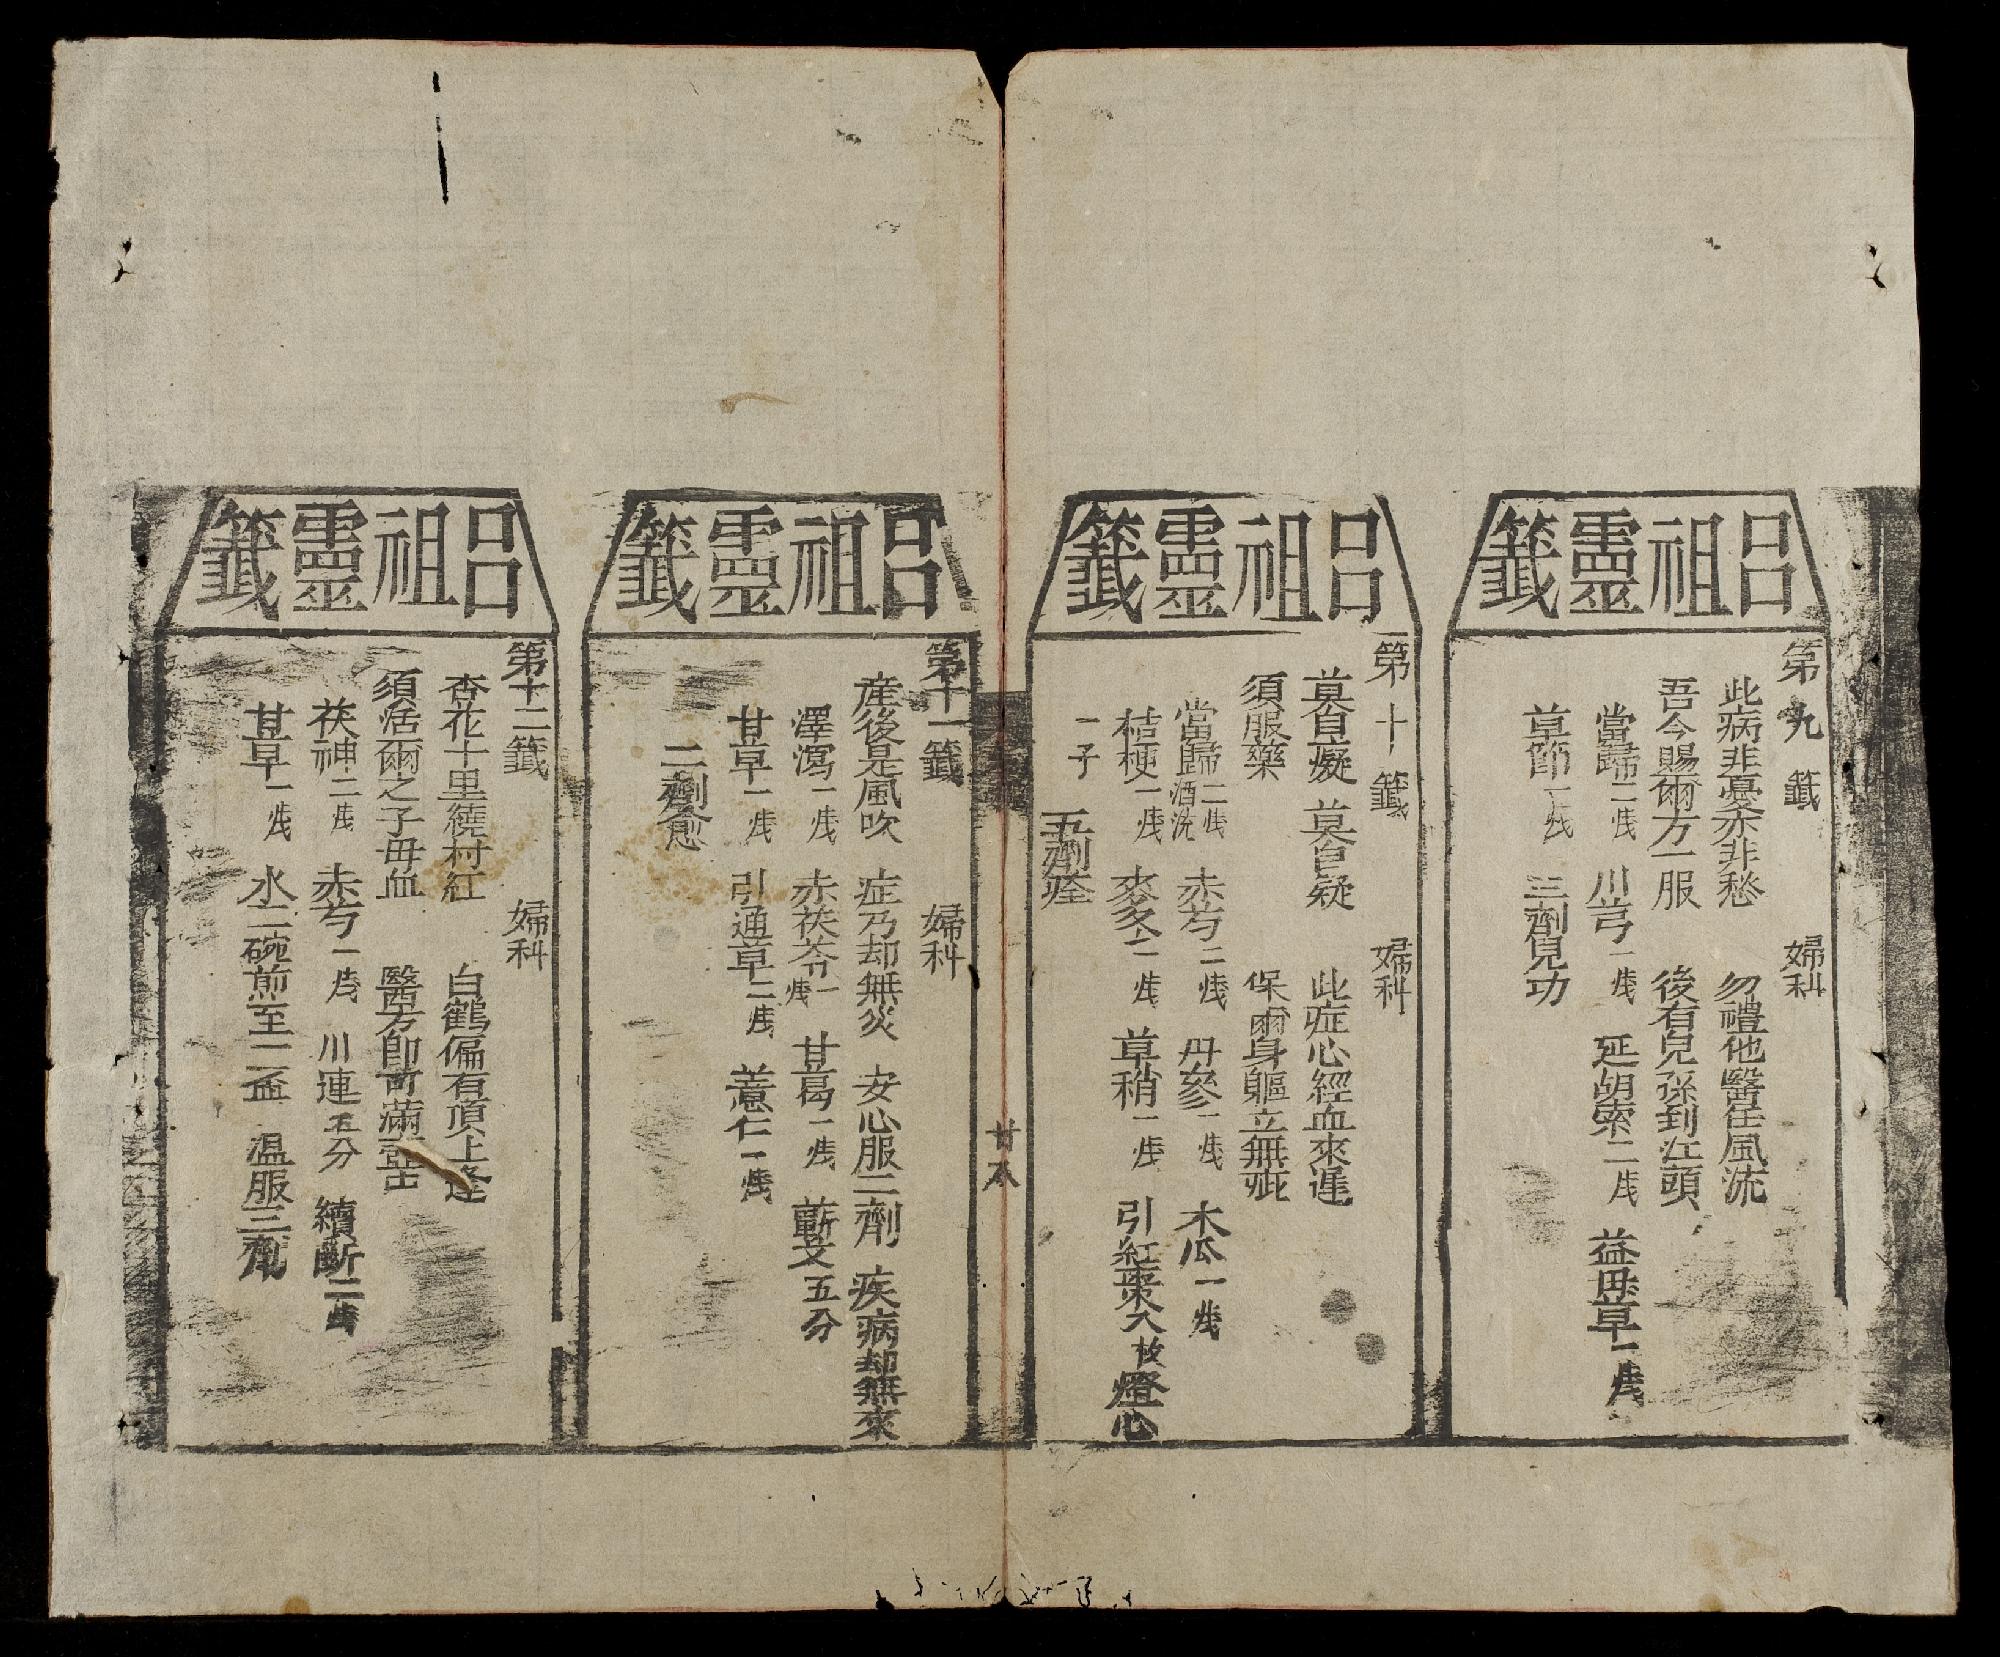 呂祖靈籤
第九籤 婦科
此病非憂亦非愁 勿禮他醫任風流
吾今賜爾方一服 後有兒孫到江頭
當歸二戋 川芎一戋 延胡索二戋 益毋草一戋
草節一戋 三劑見功
呂祖靈籤
第十籤 婦科
莫自癡 莫自疑 此症心經血來遲
須服藥 保爾身軀立無疵
當歸二戋酒洗 赤芍二戋 丹參一戋 木瓜一戋
桔梗一戋 麥冬二戋 草稍一戋 引紅棗六枚燈心
一子 五劑痊
廿八
呂祖靈籤
第十一籤 婦科
産後是風吹 症乃却無災 安心服二劑 疾病却無來
澤瀉一戋 赤茯苓一戋 甘葛一戋 蘄艾五分
甘草一戋 引通草二戋 薏仁一戋
二劑愈
呂祖靈籤
第十二籤 婦科
杏花十里繞村紅 白鶴偏有頂上逢
須活爾之子毋血 醫方即可滿
茯神二戋 赤芍一戋 川連五分 續斷二戋
甘草一戋 水二碗煎至一盃 温服三劑